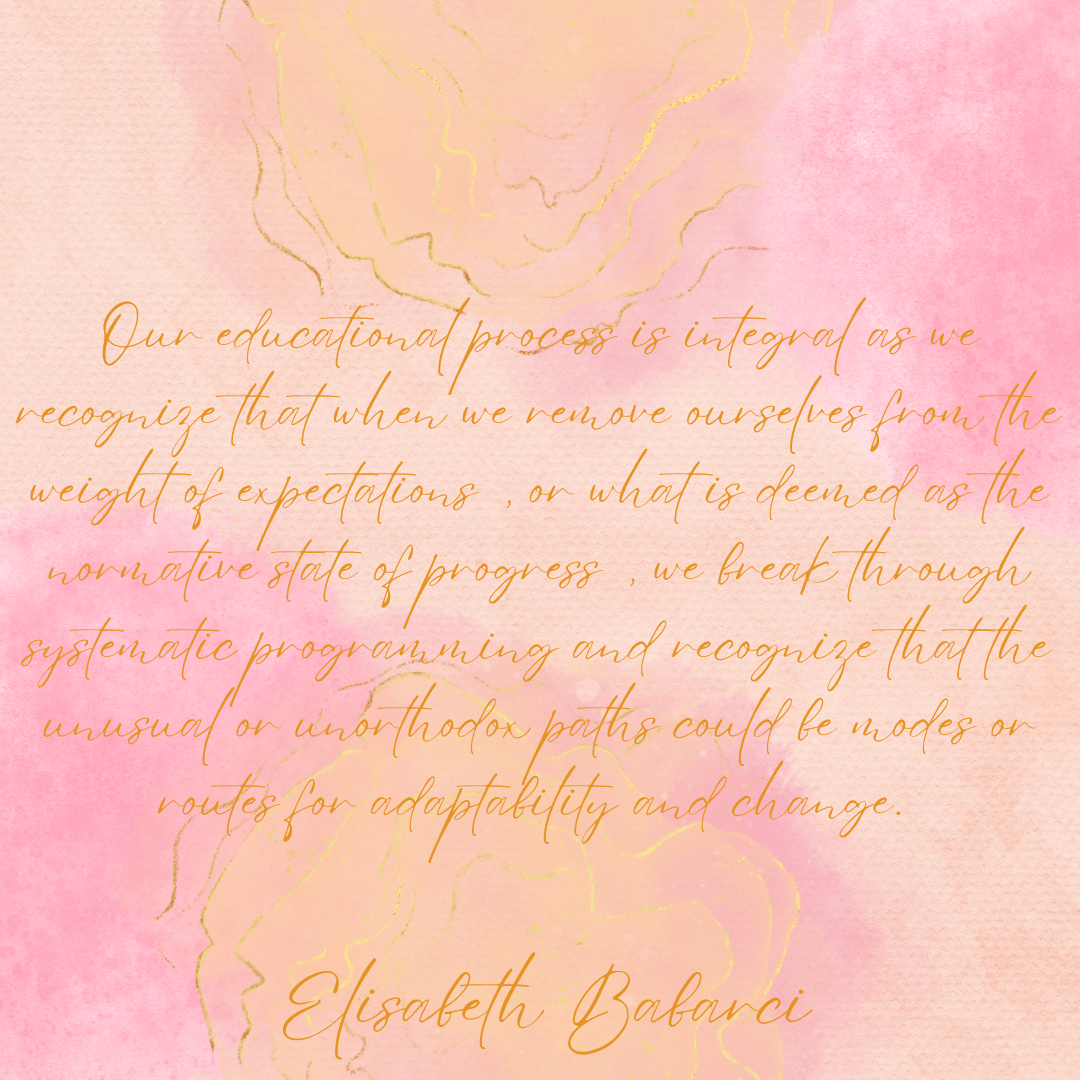 Our educational process is integral as we
recognize that when we remove ourselves from the
weight of expectations , or what is deemed as the
normative state of progress , we break through
systematic programming and recognize that the
unusual or unorthodox paths could be modes or
routes for adaptability and change.
Elisabeth Babarci